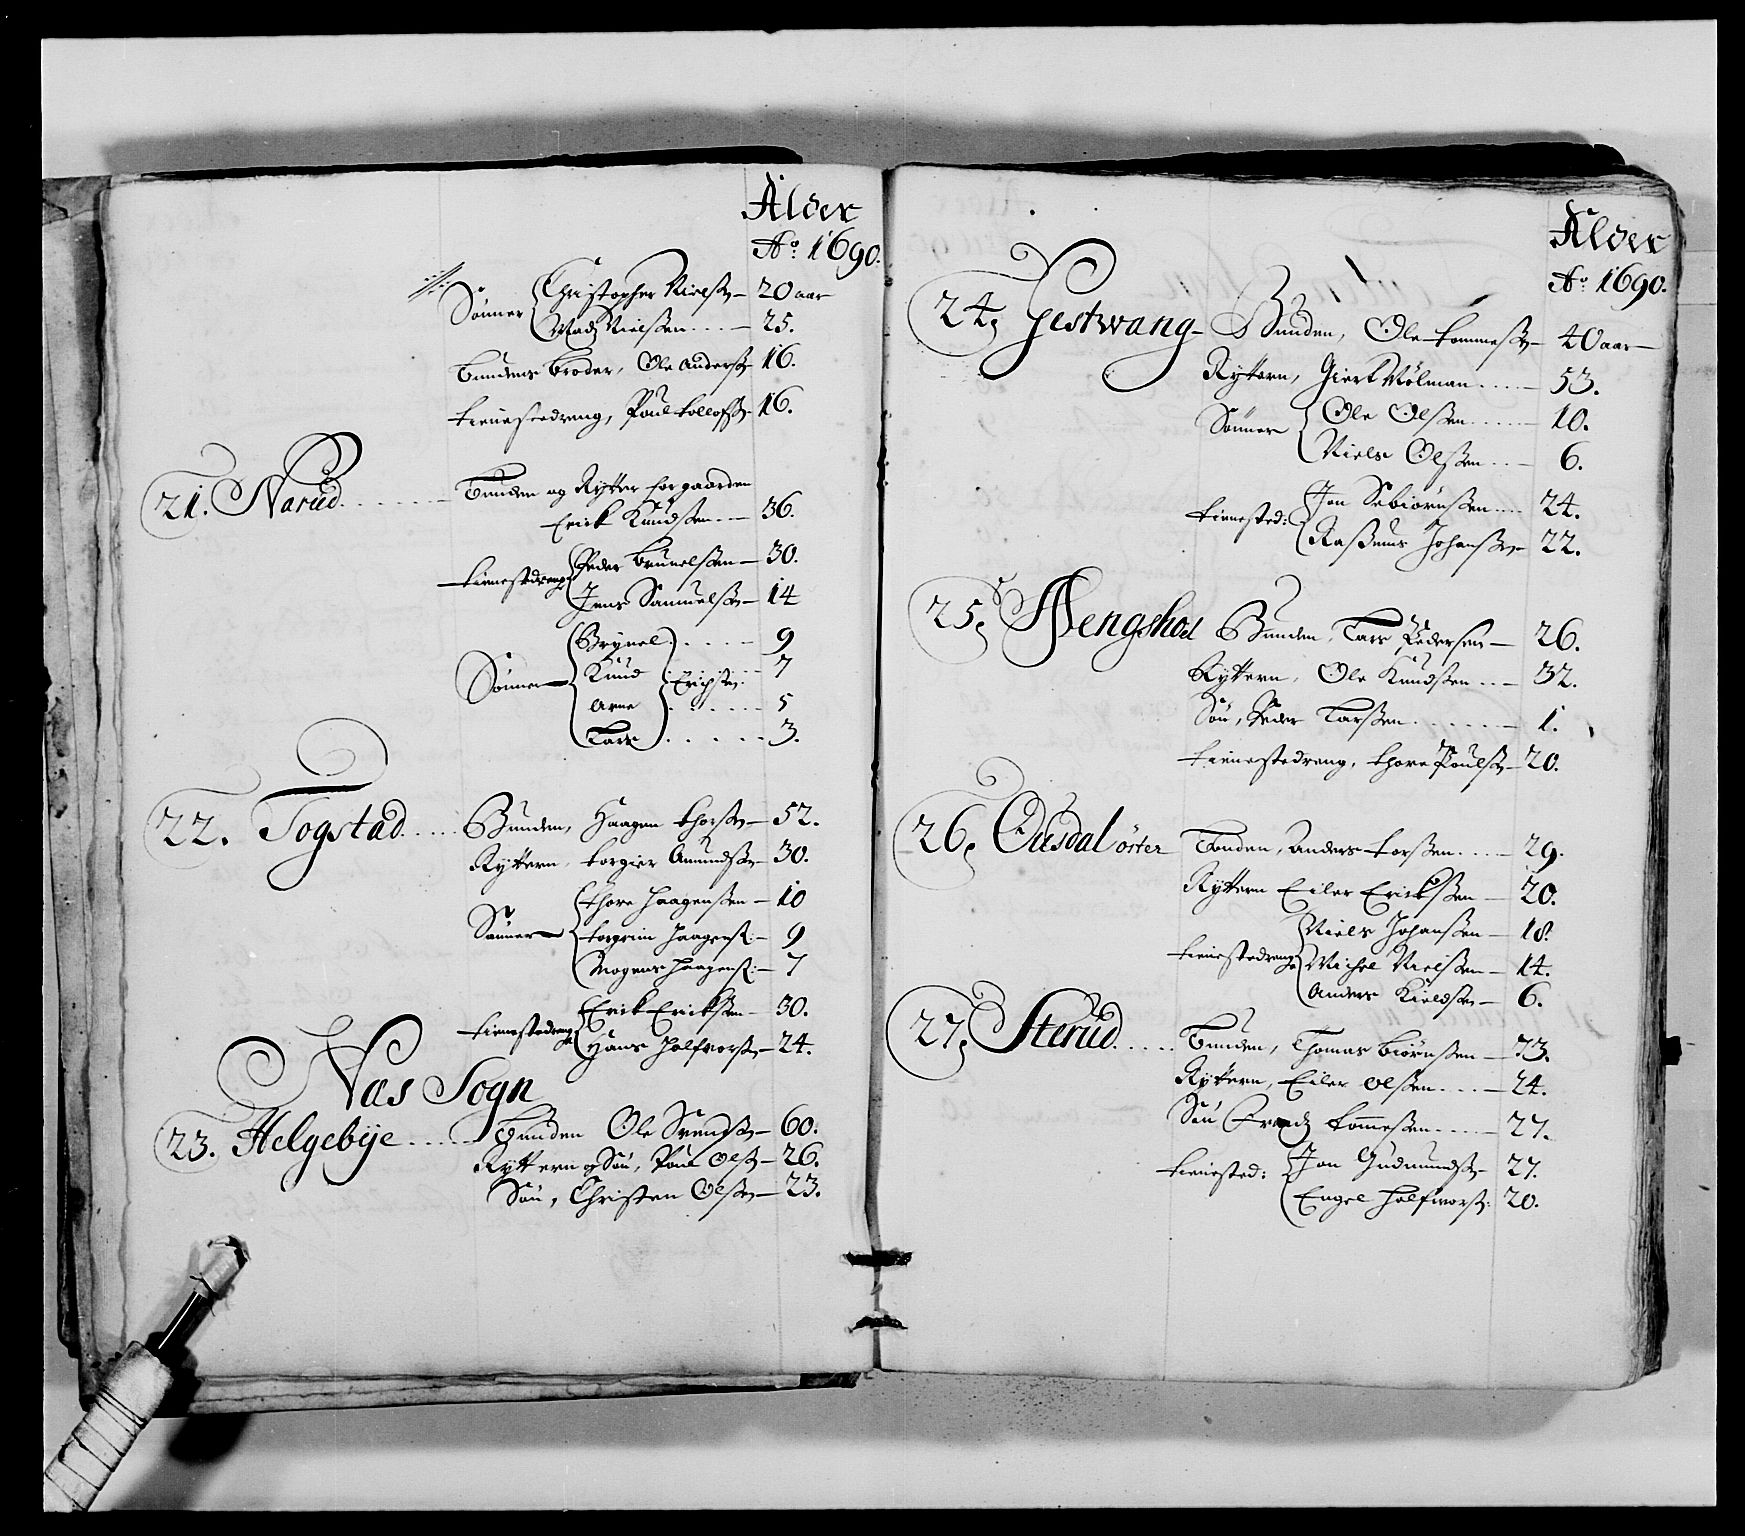 Alder
Ao. 1690.
Sønner Christopher Nielss – 20 aar
Mads Nielssen .... – 25.
Bundens broder, Ole Anderss – 16.
tienestedreng, Poul tollofss – 16.
21. Narud ........ Bunden og Rytter for gaarden
Erick Knudssen ... – 36.
tienestedrenge Peder brunelssen – 30.
Jens Samuelss – 14
Sønner Brynel ..... – 9
Knud Erichss: ... – 7
Arne ........ – 5
Lars ....... – 3.
22. Togstad ..... Bunden, Haagen thorss – 52.
Rytteren, torgier Amundss – 30.
Sønner thore Haagenssen – 10
torgrim Haagenss: – 9
Mogens Haagenss: – 7
tienestedrenge Erik Erickssen – 30.
Hans Halfvorss – 24.
Næs Sogn
23. Helgebye ..... Bunden Ole Svendss – 60.
Rytteren og Søn, Poul Olss – 26.
Søn, Christen Olss – 23.
Alder
Ao. 1690.
24. Gestwang – Bunden, Ole tommess – 40 aar –
Rytteren, Giert Mølman ..... – 53.
Sønner Ole Olssen ..... – 10.
Niels Olssen ... – 6.
tienested: Jon Sebiørnssen .... 24.
Rassmus Johanss – 22.
25. Hengshol Bunden, Lars Pedersen – 26.
Rytteren, Ole Knudssen ... – 32.
Søn, Peder Larssen ....... – 1.
tienestedreng, thore Poulss – 20.
26. Ousdal öster Bonden, Anders torssen .... – 29.
Rytteren Eiler Erickssen – 20.
tienestedrenge Niels Johanssen – 18.
Michel Nielssen – 14.
Anders Kieldss – 6.
27. Sterud ..... Bunden, Thomas biørnssen – 73.
Rytteren, Eiler olssen .... – 24.
Søn Frendz tommessen .... – 27.
tienested: Jon Gudmundss – 27.
Engel Halfvorss: 20.